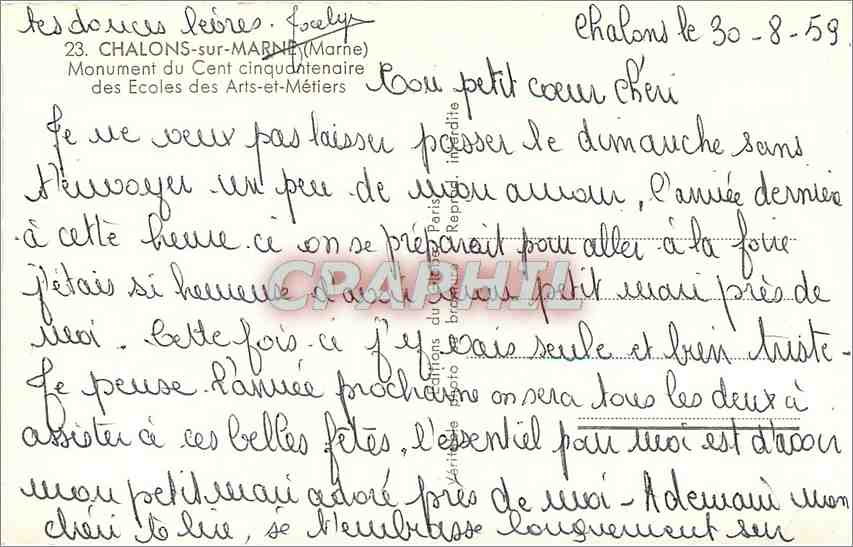 tes douces lèvres. Jocelyn
Chalons le 30-8-59
23. CHALONS-sur-MARNE (Marne)
Monument du Cent cinquantenaire
des Ecoles des Arts-et-Métiers
Mon petit cœur chéri
Je ne veux pas laisser passer le dimanche sans
t'envoyer un peu de mon amour, l'année dernière
à cette heure ci on se préparait pour aller à la foire
j'étais si heureuse d'avoir mon petit mari près de
moi. Cette fois-ci j'y vais seule et bien triste-
Je pense l'année prochaine on sera tous les deux à
assister à ces belles fêtes, l'essentiel pour moi est d'avoir
mon petit mari adoré près de moi - A demain mon
chéri à lire, je t'embrasse longuement sur
Editions du Globe, Paris
Véritable photo au bromure - Reprod. interdite
CPAPHIL